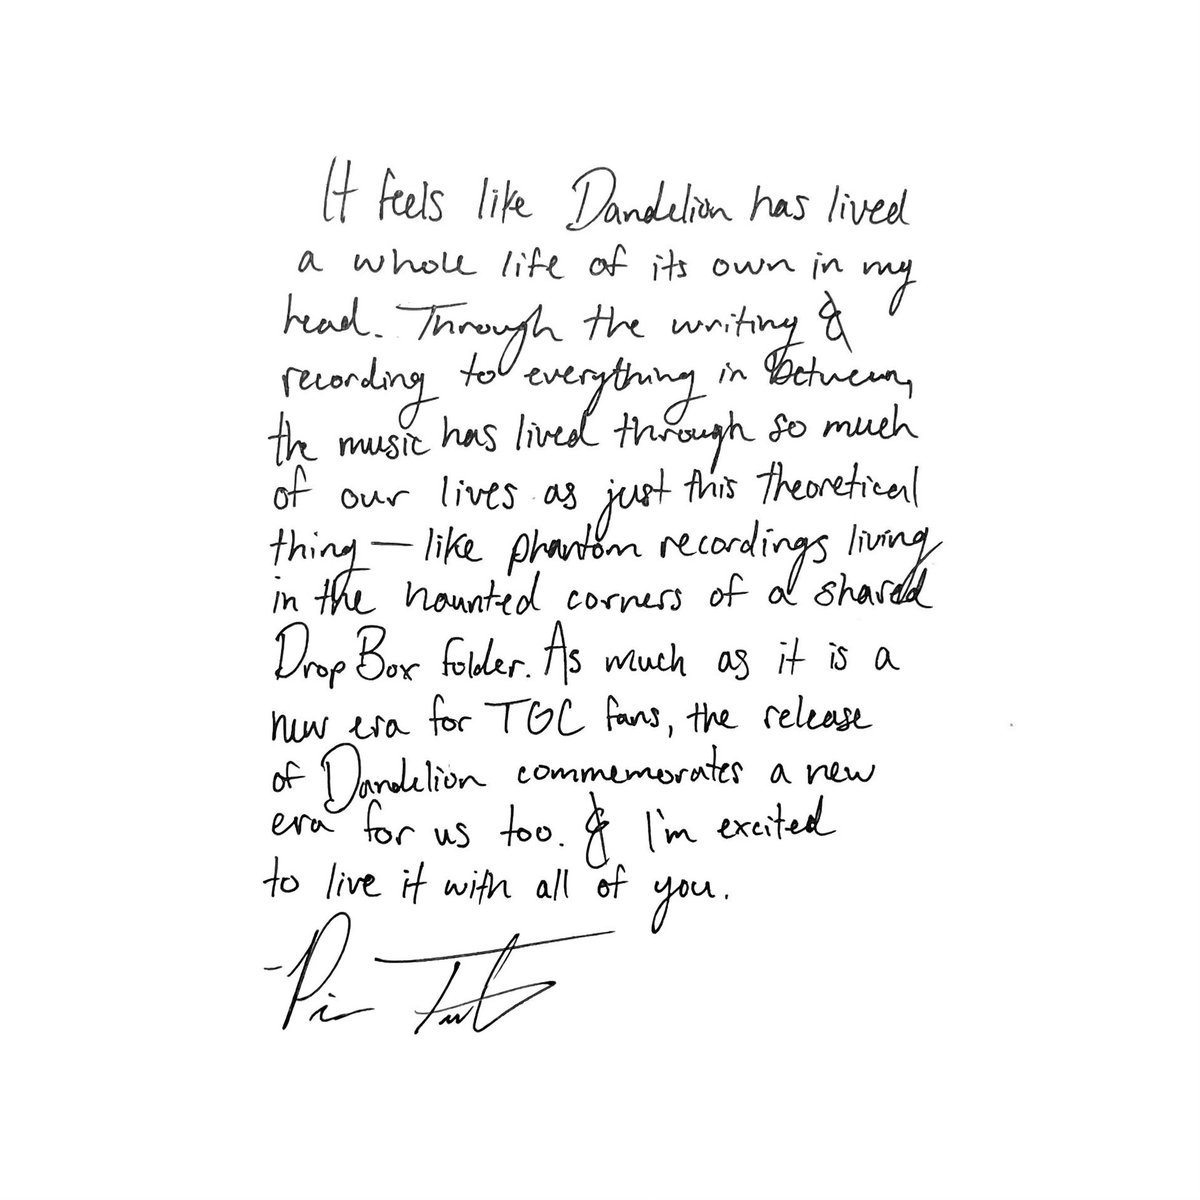 It feels like Dandelion has lived
a whole life of its own in my
head. Through the writing &
recording to everything in between,
the music has lived through so much
of our lives as just this theoretical
thing — like phantom recordings living
in the haunted corners of a shared
DropBox folder. As much as it is a
new era for TGC fans, the release
of Dandelion commemorates a new
era for us too. & I'm excited
to live it with all of you.